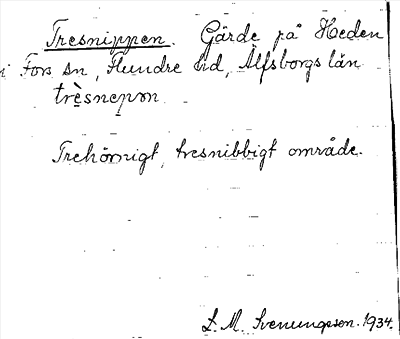 Tresnippen. Gärde på Heden
i Fors sn, Flundre hd, Älfsborgs län
trèsnepən
Trehörnigt, tresnibbigt område.
L. M. Svenungsson. 1934.